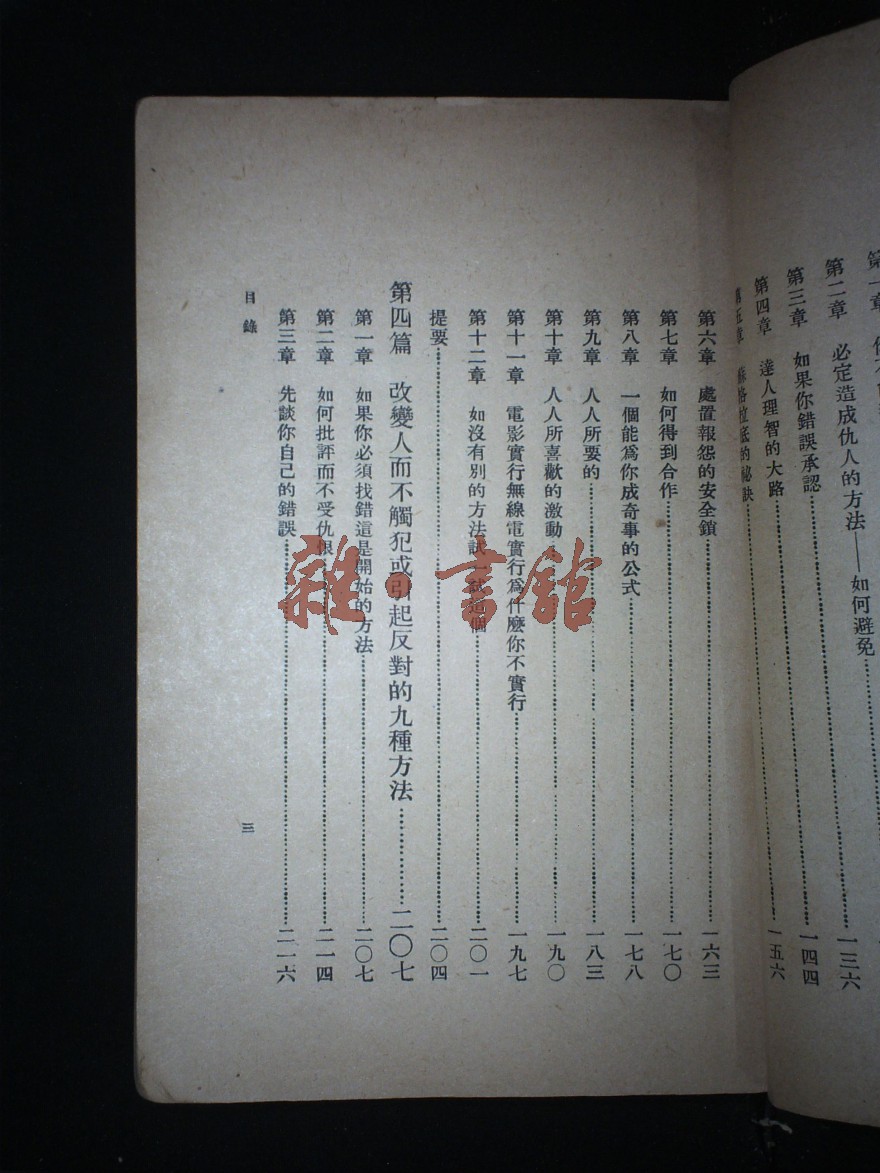 第二章 必定造成仇人的方法——如何避免 一三六
第三章 如果你錯誤承認 一四四
第四章 達人理智的大路 一五六
第五章 蘇格拉底的祕訣
第六章 處置報怨的安全鎖 一六三
第七章 如何得到合作 一七〇
第八章 一個能爲你成奇事的公式 一七八
第九章 人人所要的 一八三
第十章 人人所喜歡的激動 一九〇
第十一章 電影實行無線電實行爲什麼你不實行 一九七
第十二章 如沒有別的方法試一試這個 二〇一
提要 二〇四
第四篇 改變人而不觸犯或引起反對的九種方法 二〇七
第一章 如果你必須找錯這是開始的方法 二〇七
第二章 如何批評而不受仇恨 二一四
第三章 先談你自己的錯誤 二一六
目錄
三
雜·書館